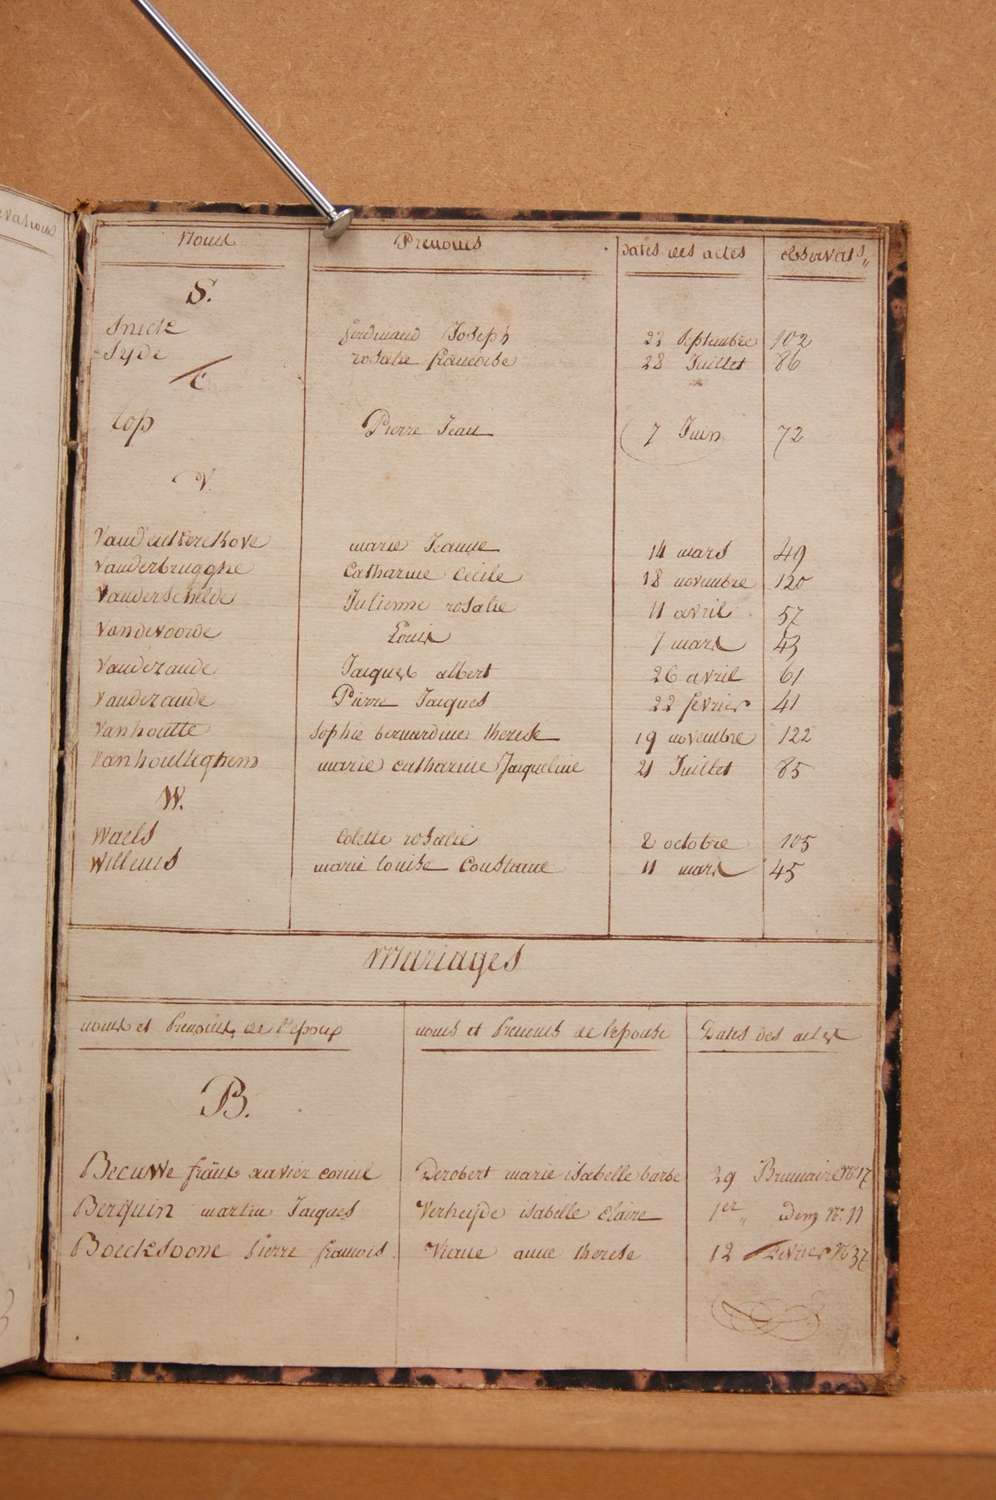 vations
Noms Prenoms Dates des actes observats
S.
Snick ferdinand Joseph 22 Septembre 102
Syde rosalie francoise 28 Juillet 86
t
top Pierre Jean 7 Juin 72
V.
Vandenkerckove marie Jeanne 14 mars 49
vanderbrugghe Catharine Cécile 18 novembre 120
vanderschelde Julienne rosalie 11 avril 57
vandevoorde Louis 7 mars 43
vandezande Jacques albert 26 avril 61
vandezande Pierre Jacques 22 fevrier 41
vanhoutte sophie bernardine therese 19 novembre 122
vanhoulteghem marie catharine Jacqueline 21 Juillet 85
W.
Waels Colette rosalie 2 octobre 105
Willems marie louise Constance 11 mars 45
Mariages
noms et Prenoms de l'epoux noms et Prenoms de lepouse Dates des actes
B.
Becuwe franc xavier corneil Derobert marie isabelle barbe 29 Brumaire N° 17
Berquin martin Jacques Verheyde isabelle Claire 1er idem N. 11
Boecksoone pierre francois. Viane anne therese 12 fevrier N° 37